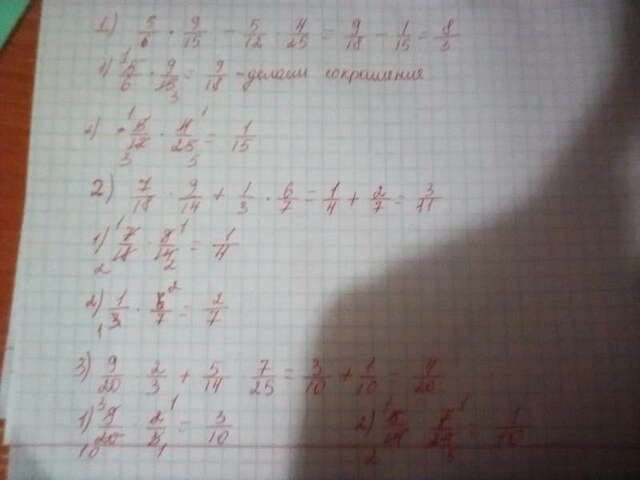 1) 5/6 · 9/15 - 5/12 · 4/25 = 9/18 - 1/15 = 8/3
1) 5/6 · 9/15 = 9/18 - делаем сокращения
2) 5/12 · 4/25 = 1/15
2) 7/18 · 9/14 + 1/3 · 6/7 = 1/4 + 2/7 = 3/11
1) 7/18 · 9/14 = 1/4
2) 1/3 · 6/7 = 2/7
3) 9/20 2/3 + 5/14 7/25 = 3/10 + 1/10 = 4/20
1) 9/20 · 2/3 = 3/10 2) 5/14 7/25 = 1/10